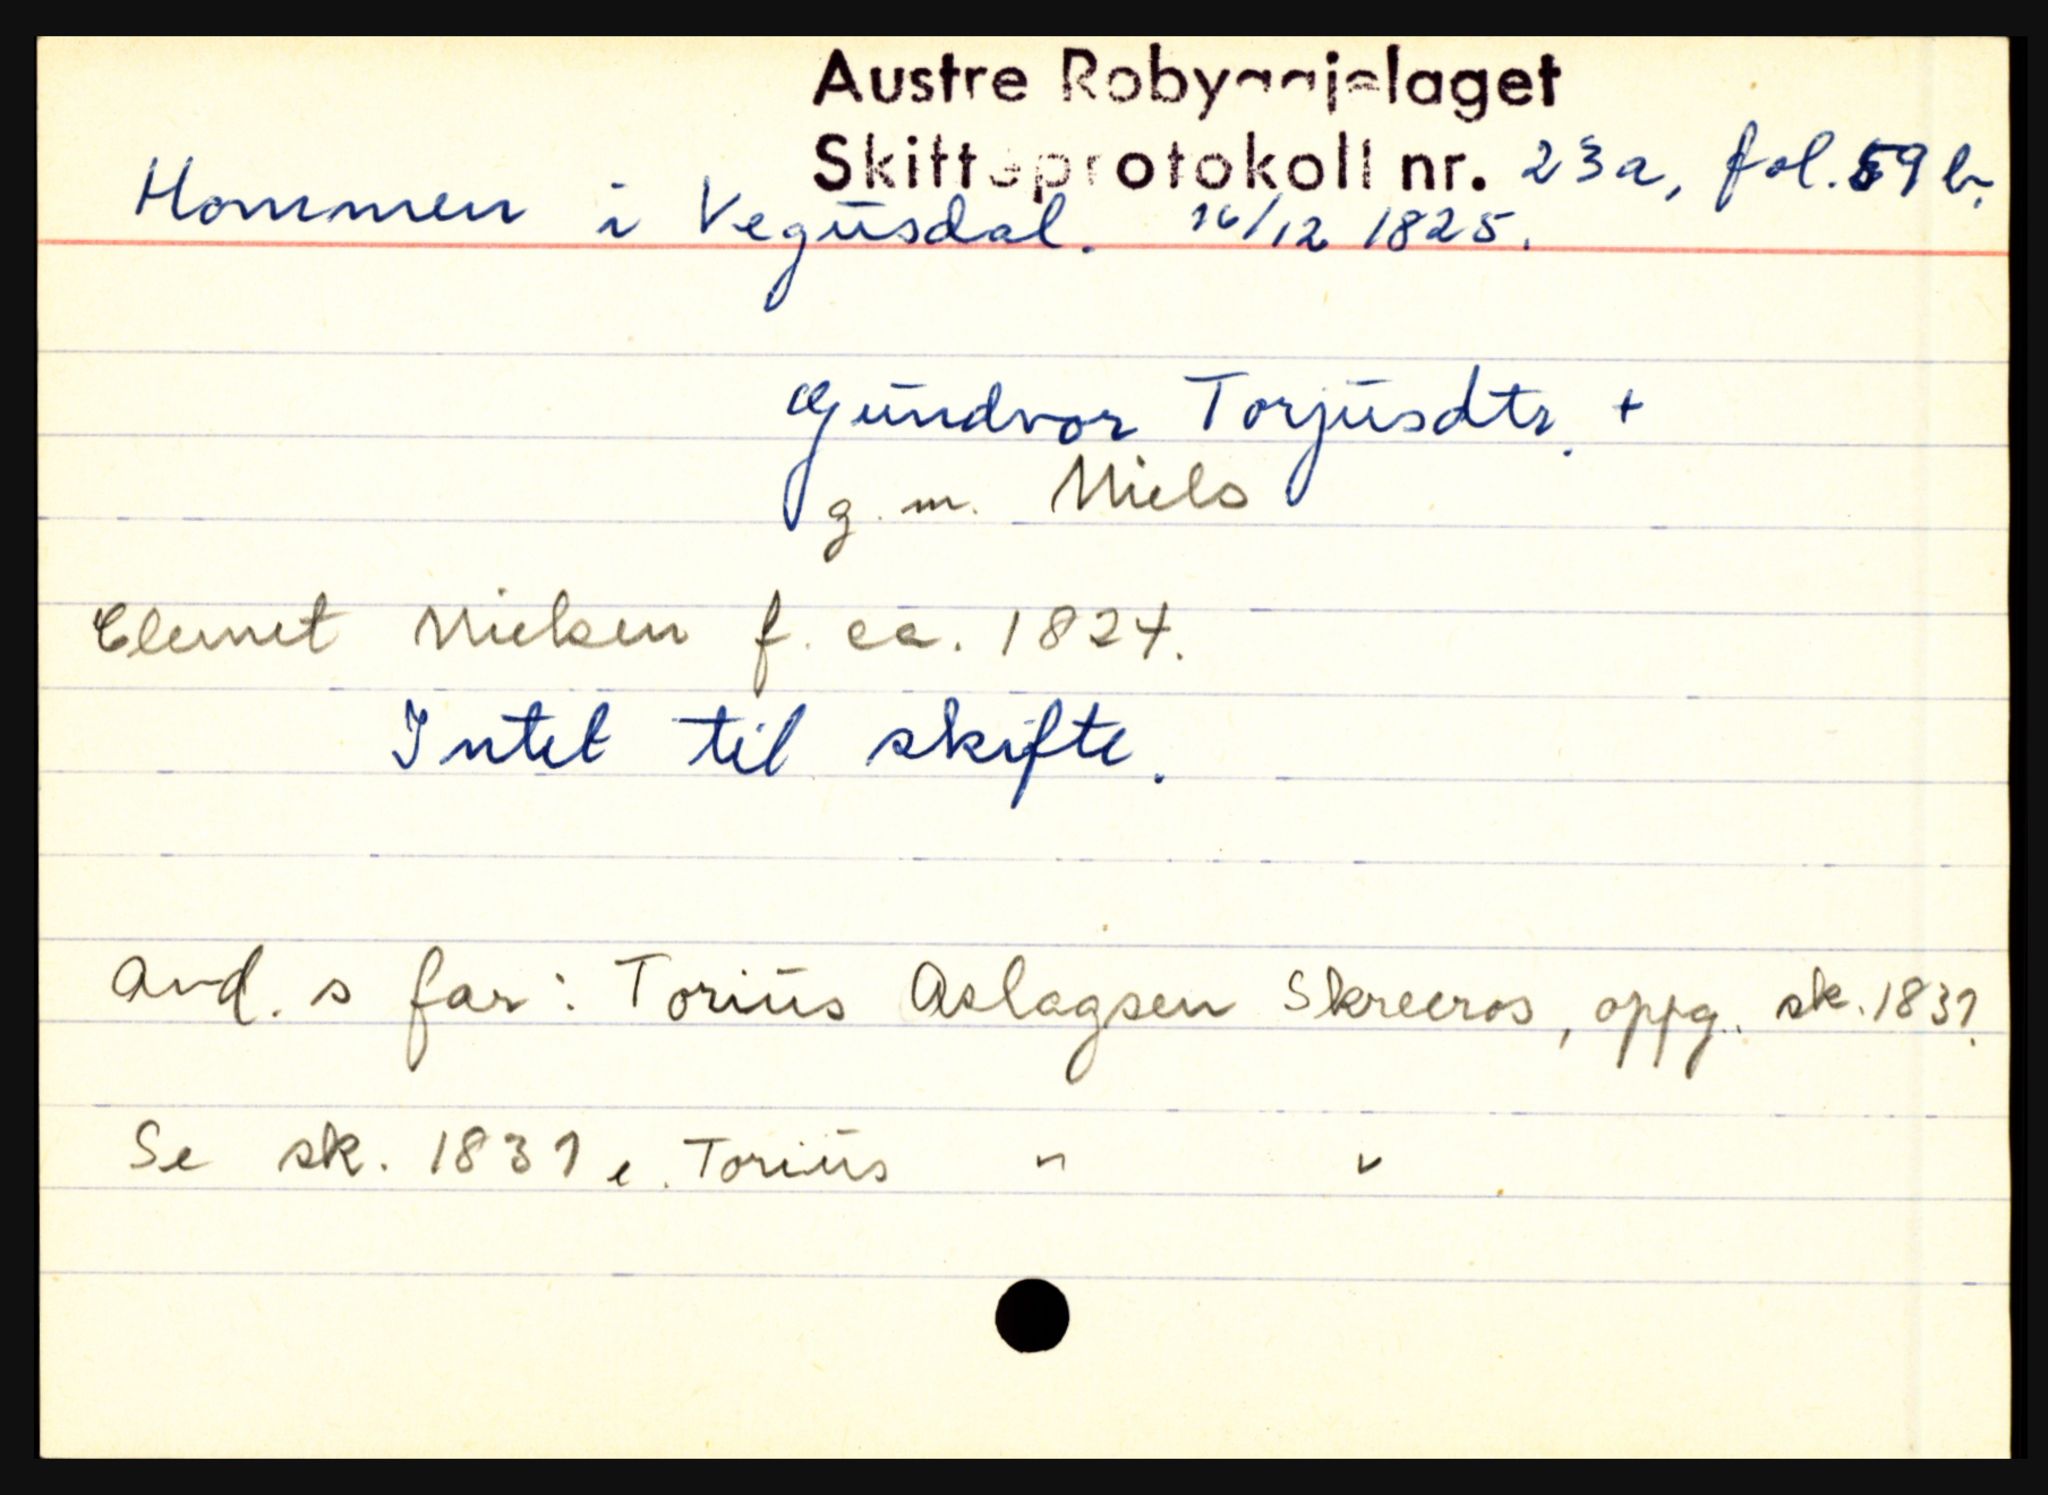 Austre Robyggjelaget
Skifteprotokoll nr. 23a, fol. 59 b.
Hommen i Vegusdal. 16/12 1825.
Gundvor Torjusdtr. +
g. m. Niels
Clemet Nielsen f. ca. 1824.
Intet til skifte.
Avd. s far: Torius Aslagsen Skreeros, oppg. sk. 1831.
Se sk. 1831 e. Torius " "